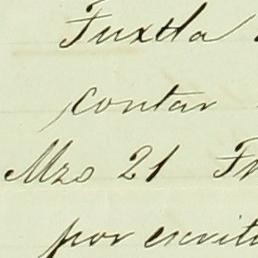 Tuxtla
contar
Mzo 21
por escrit